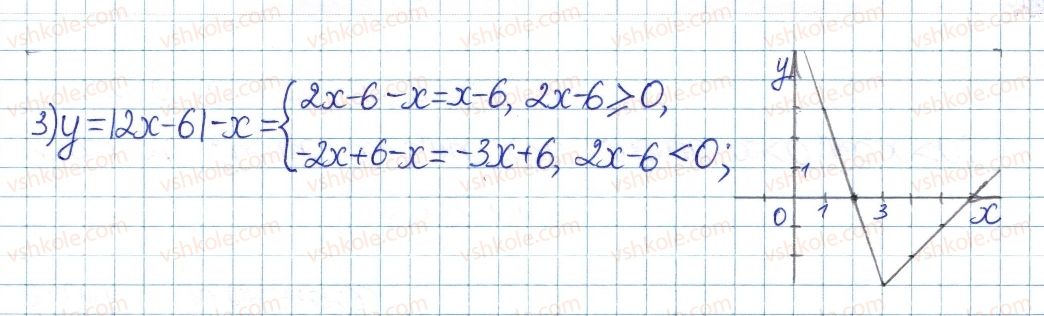 3) y = |2x-6| - x = { 2x-6-x = x-6, 2x-6 ⩾ 0,
-2x+6-x = -3x+6, 2x-6 < 0;
y
1
0 1 3 x
vshkole.com